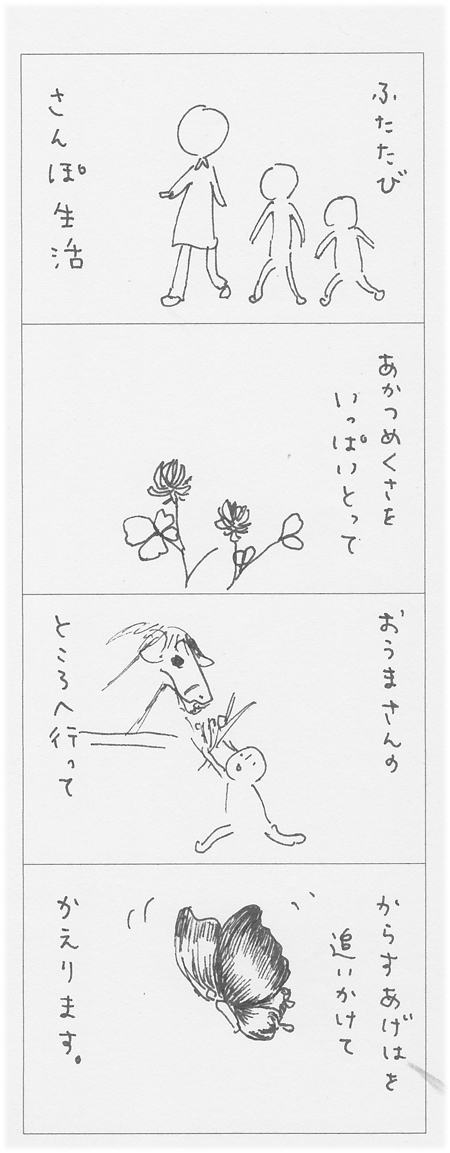 ふたたび
さんぽ生活
あかつめくさを
いっぱいとって
おうまさんの
ところへ行って
からすあげはを
追いかけて
かえります。